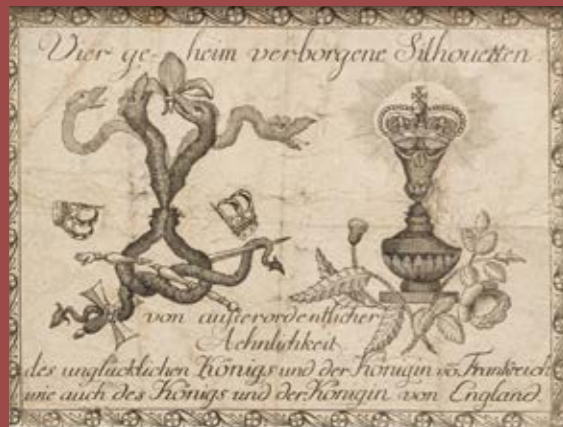 Vier ge- heim verborgene Silhouetten.
von außerordentlicher
Aehnlichkeit
des unglücklichen Königs und der Königin vō Frankreich
wie auch des Königs und der Königin von England.